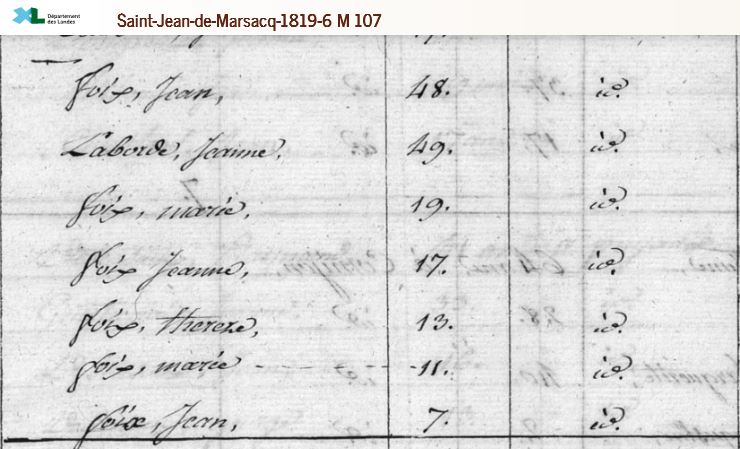 Département
des Landes
Saint-Jean-de-Marsacq-1819-6 M 107
foix, Jean, 48. id.
Laborde, Jeanne, 49. id.
foix, marie, 19. id.
foix Jeanne, 17. id.
foix, therese, 13. id.
foix, marie - - - - - 11. id.
foix, Jean, 7. id.